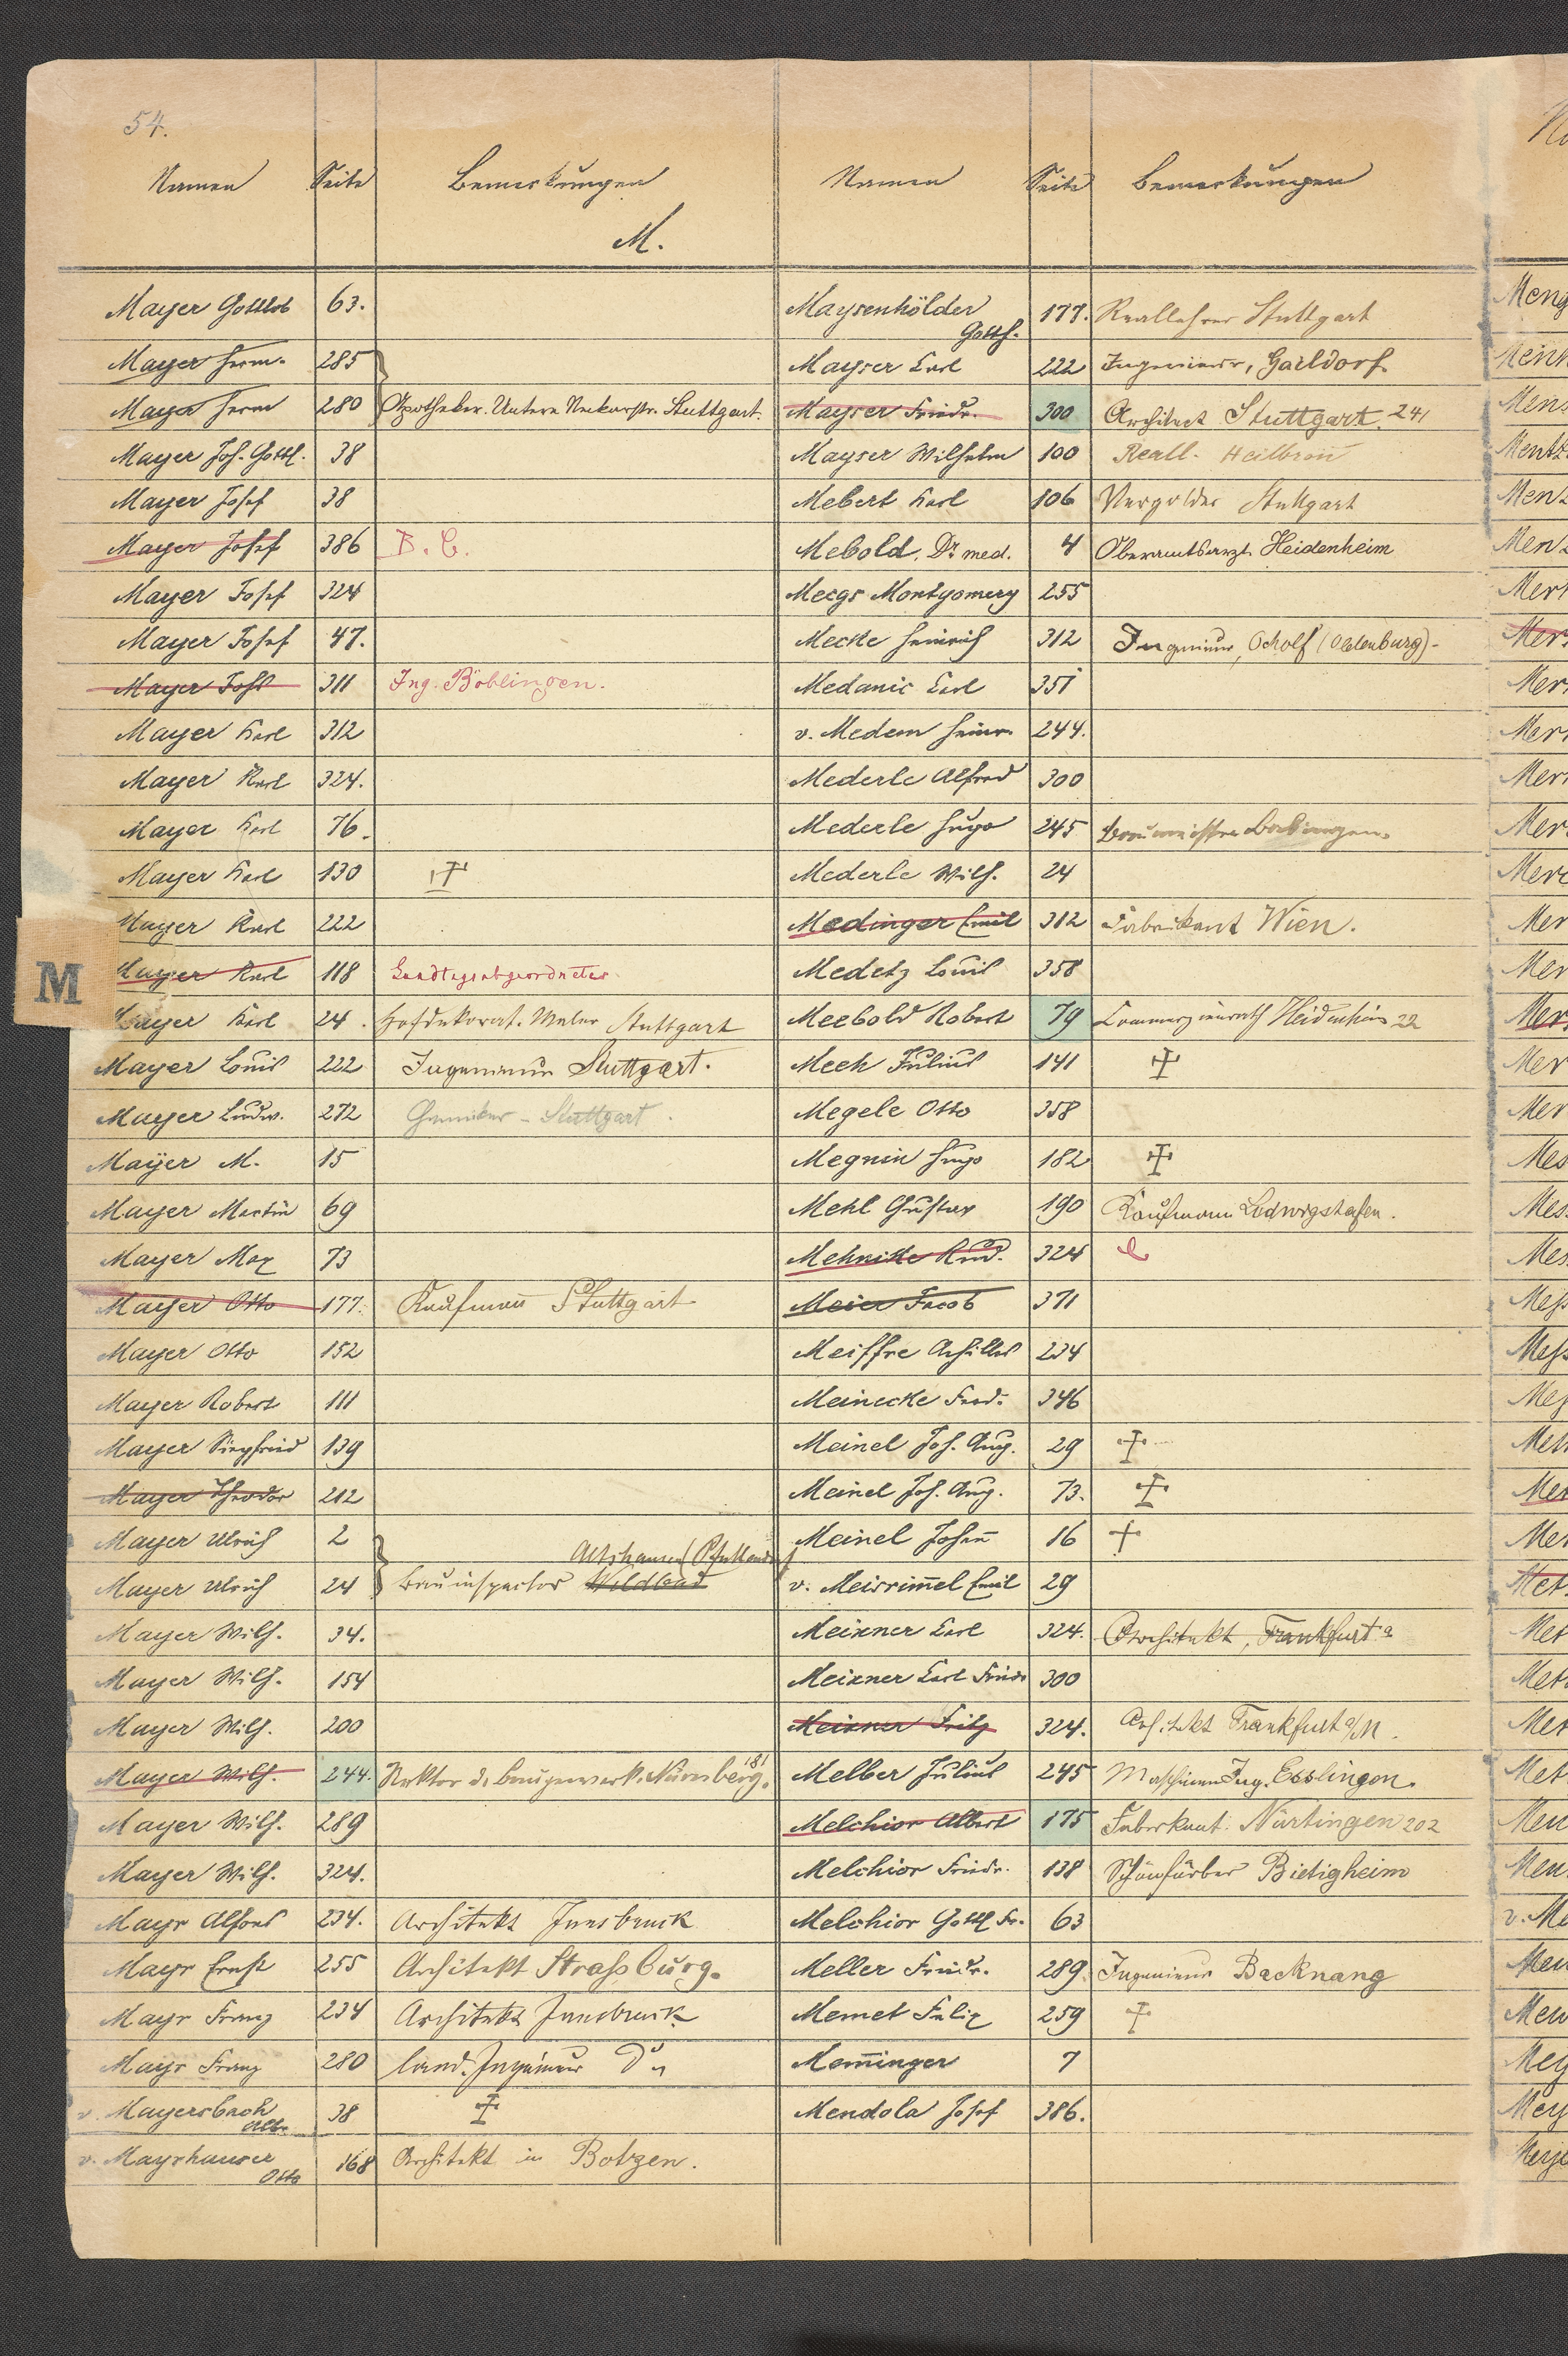 54.
Namen Seite Bemerkungen
M.
Mayer Gottlob 63.
Mayer Herm. 285
Mayer Herm 280 Apotheker. Untere Neckarstr. Stuttgart.
Mayer Joh. Gottl. 38
Mayer Josef 38
Mayer Josef 386
Mayer Josef 324
Mayer Josef 47.
Mayer Josef 311 Ing. Böblingen.
Mayer Karl 312
Mayer Karl 324.
Mayer Karl 76.
Mayer Karl 130 †
Mayer Karl 222
Mayer Karl 118 Landtagsabgeordneter
Mayer Karl 24. Hofdekorat. Maler Stuttgart
Mayer Louis 222 Ingenieur Stuttgart.
Mayer Ludw. 272 Chemiker - Stuttgart.
Mayer M. 15
Mayer Martin 69
Mayer Max 73
Mayer Otto 177. Kaufmann Stuttgart
Mayer Otto 152
Mayer Robert 111
Mayer Siegfried 139
Mayer Theodor 212
Mayer Ulrich 2
Altshausen
Mayer Ulrich 24 Bauinspector Wildbad
Mayer Wilh. 34.
Mayer Wilh. 154
Mayer Wilh. 200
Mayer Wilh. 244. Rektor d. Baugewerk. Nürnberg. 181
Mayer Wilh. 289
Mayer Wilh. 324.
Mayr Alfons 234. Architekt Innsbruck
Mayr Ernst 255 Architekt Strassburg.
Mayr Franz 234 Architekt Innsbruck
Mayr Franz 280 land. Ingenieur do
v. Mayersbach 38 †
Alb.
v. Mayrhauser 168 Architekt in Botzen.
Otto
M
Namen Seite Bemerkungen
Maysenhölder 177. Reallehrer Stuttgart
Gotth.
Mayser Carl 222 Ingenieur, Gaildorf
Mayser Friedr. 300 Architect Stuttgart. 241
Mayser Wilhelm 100 Reall. Heilbronn
Mebert Karl 106 Vergolder Stuttgart
Mebold, Dr. med. 4 Oberamtsarzt Heidenheim
Meegs Montgomery 255
Mecke Heinrich 312 Ingenieur, Ocholt (Oldenburg)
Medanic Carl 351
v. Medem Heinr. 244.
Mederle Alfred 300
Mederle Hugo 245
Mederle Wilh. 24
Medinger Emil 312 Fabrikant Wien.
Medetz Louis 358
Meebold Robert 79 Commerzienrath Heidenheim 22
Meeh Julius 141 †
Megele Otto 358
Megnin Hugo 182 †
Mehl Gustav 190 Kaufmann Ludwigshafen.
Mehnitte Rud. 324
Meier Jacob 371
Meiffre Achilles 234
Meinecke Ferd. 346
Meinel Joh. Aug. 29 †
Meinel Joh. Aug. 73. †
Meinel Johan̄ 16 †
v. Meisrim̄el Emil 29
Meixner Carl 324. Architekt, Frankfurt a
Meixner Carl Friedr 300
Meixner Fritz 324. Architekt Frankfurt a/M.
Melber Julius 245 Maschinen Ing. Esslingen.
Melchior Albert 175 Fabrikant. Nürtingen 202
Melchior Friedr. 138 Schönfärber Bietigheim
Melchior Gottl. Fr. 63
Meller Friedr. 289. Ingenieur Backnang
Memet Felix 259 †
Mem̄inger 7
Mendola Josef 386.